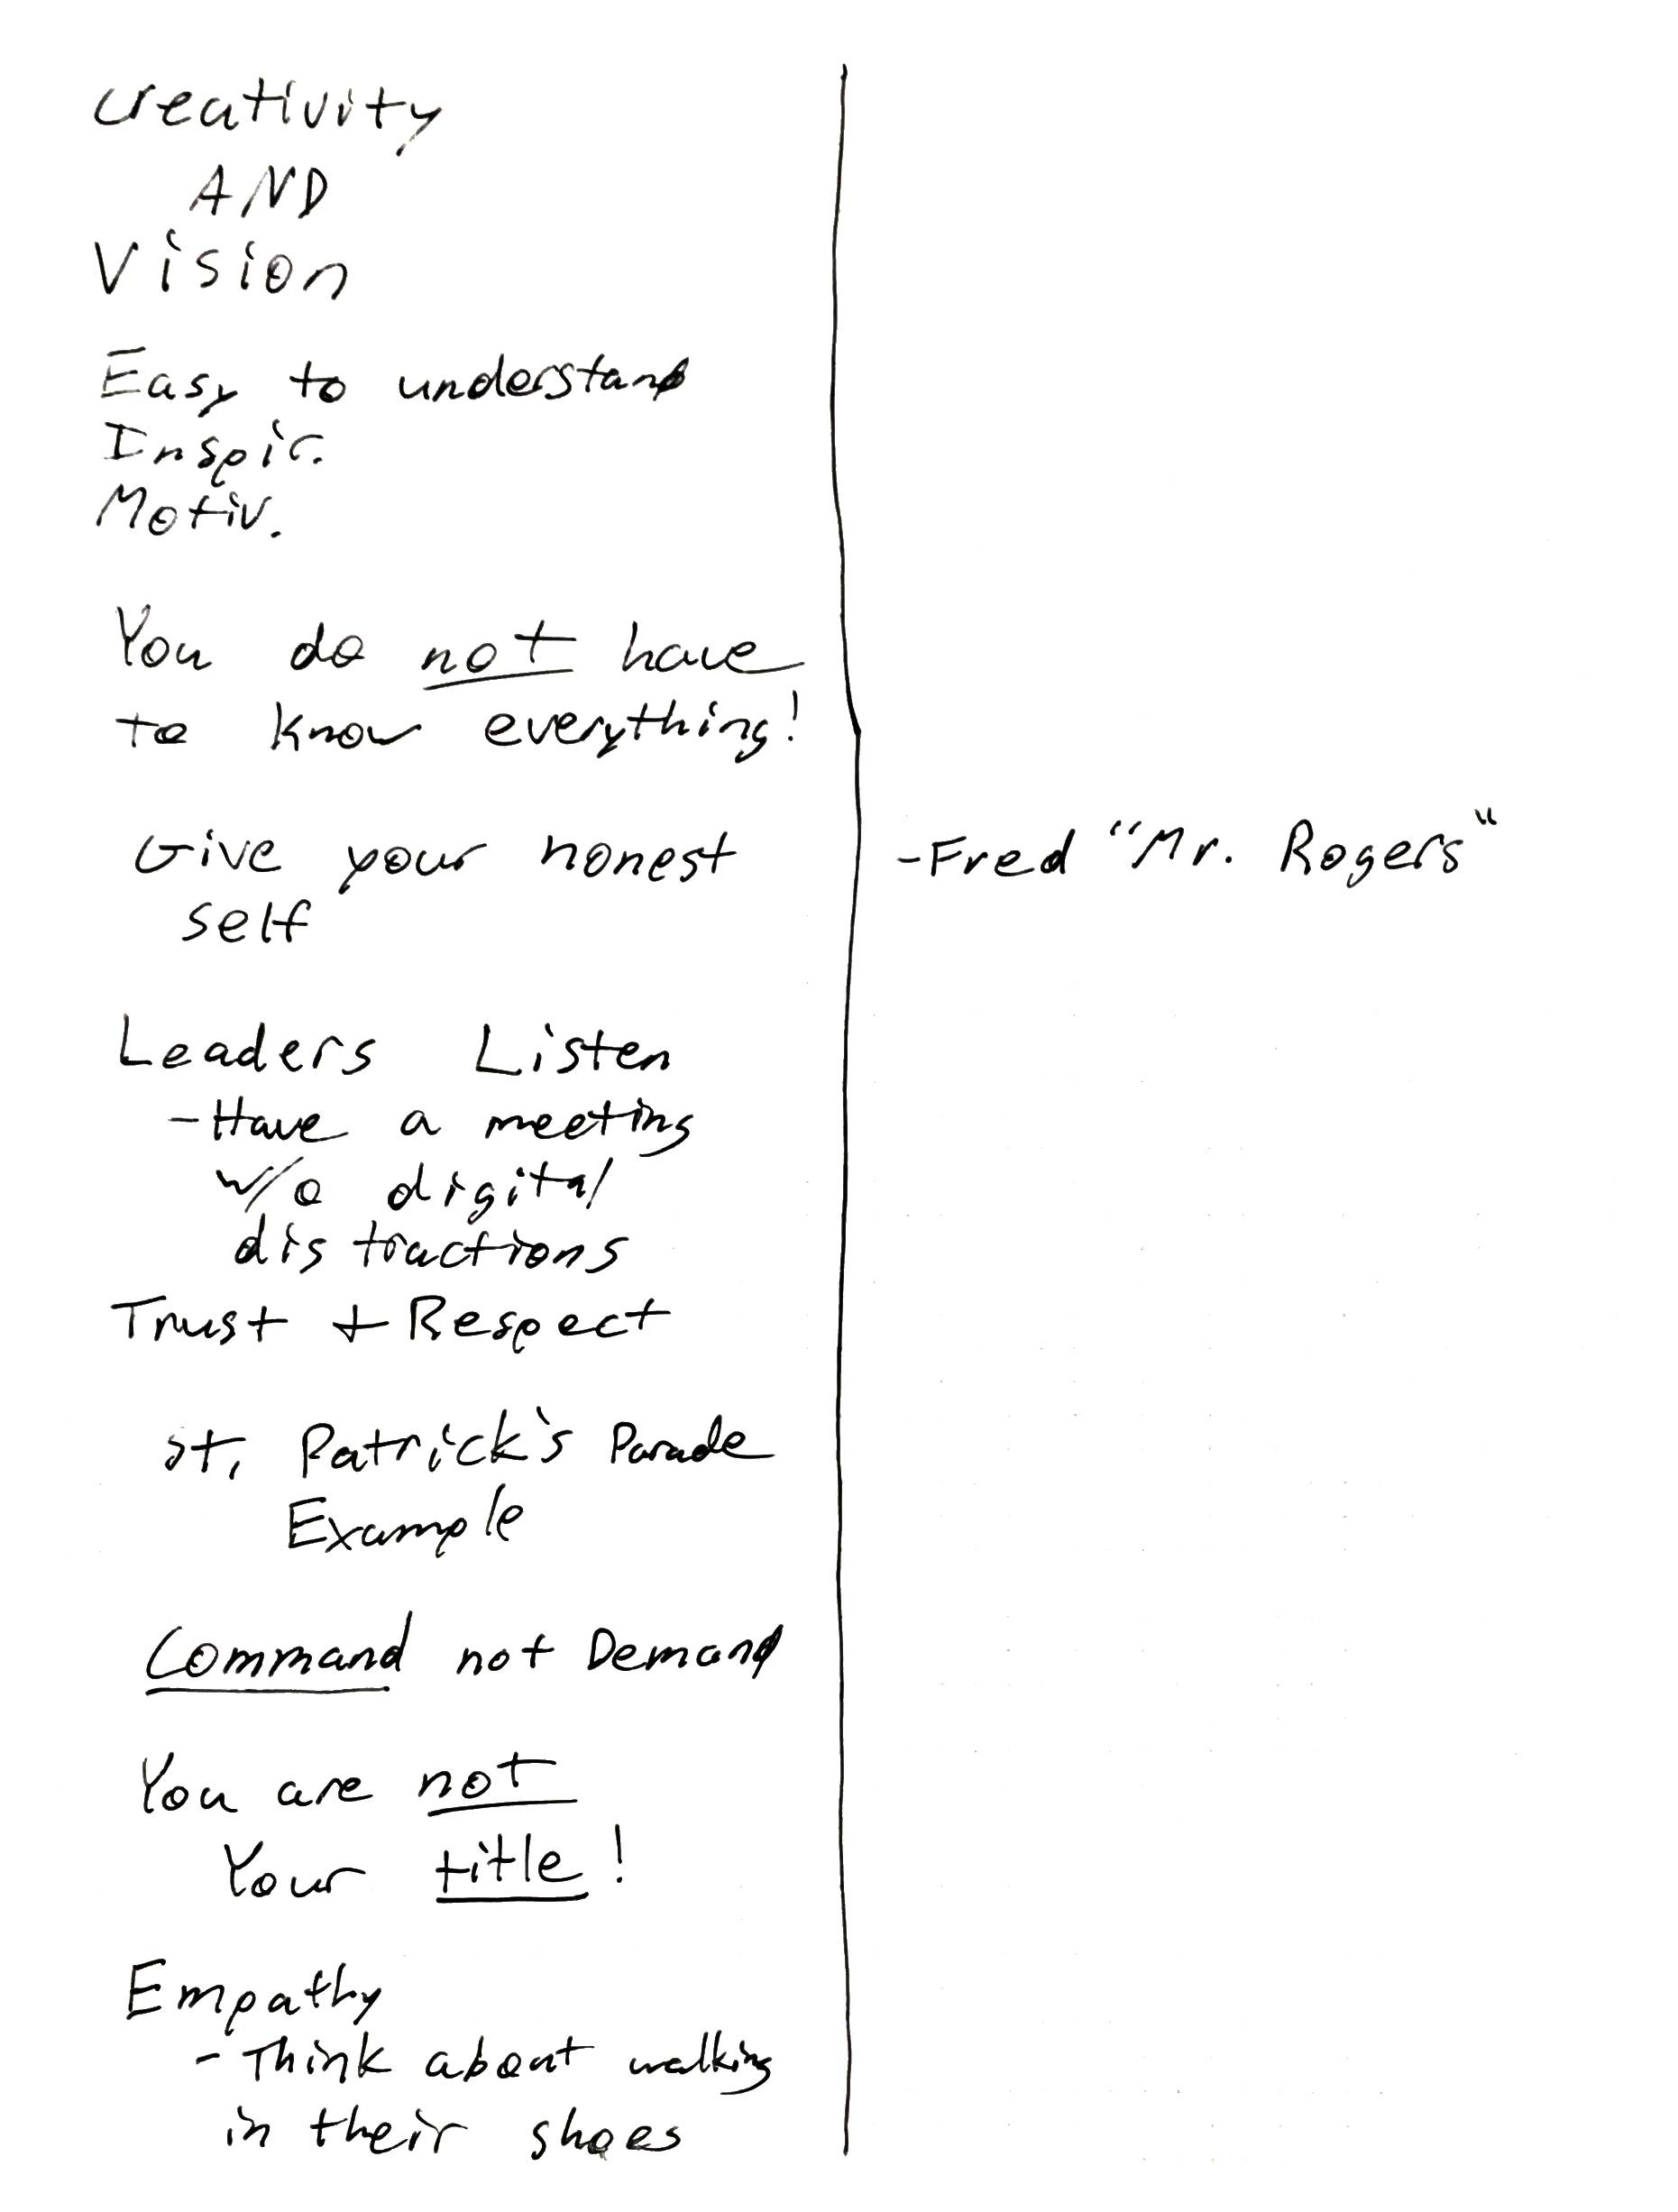 Creativity
AND
Vision
Easy to understand
Inspir.
Motiv.
You do not have
to know everything!
Give your honest
self
-Fred "Mr. Rogers"
Leaders Listen
-Have a meeting
w/o digital
distractions
Trust + Respect
St. Patrick's Parade
Example
Command not Demand
You are not
Your title!
Empathy
- Think about walking
in their shoes